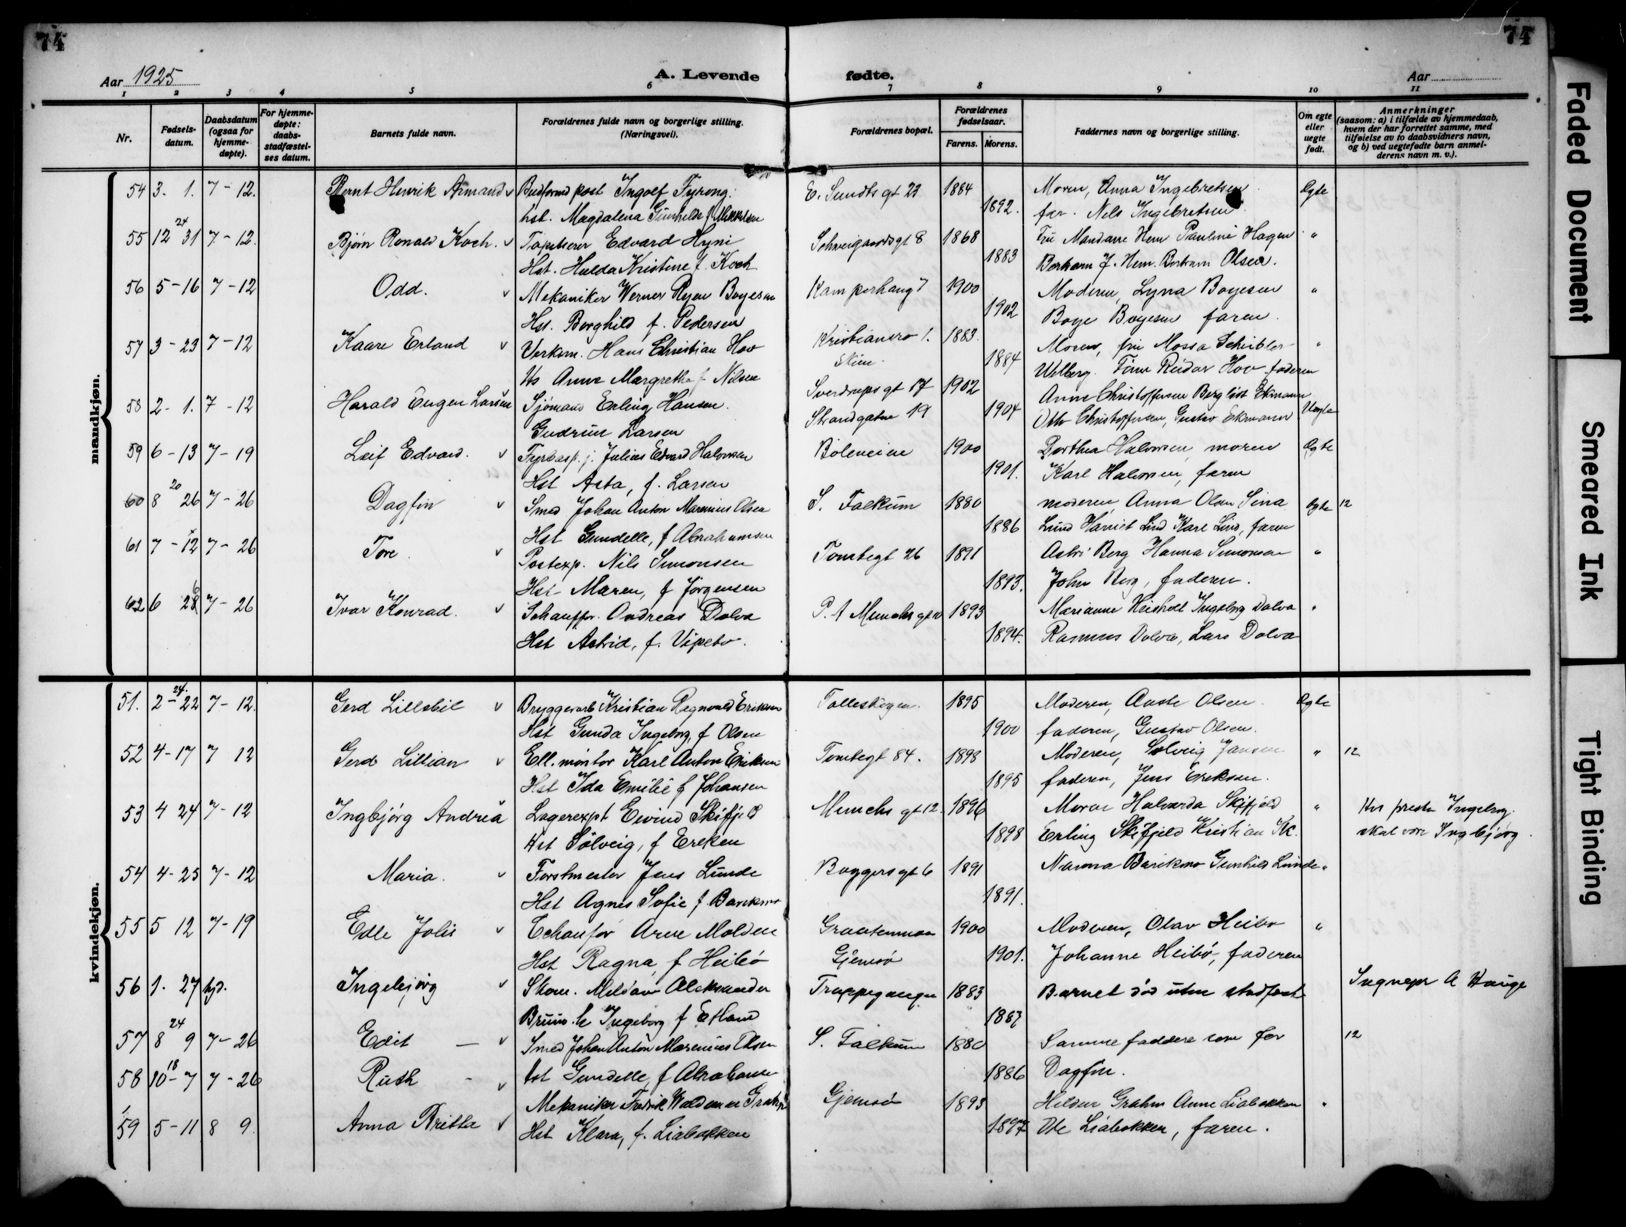 74
74
Aar 1925
A. Levende
fødte.
Aar
1 2 3 4 5 6 7 8 9 10 11
Nr.
Fødsels-
datum.
Daabsdatum
(ogsaa for
hjemme-
døpte).
For hjemme-
døpte:
daabs-
stadfæstel-
ses datum.
Barnets fulde navn.
Forældrenes fulde navn og borgerlige stilling.
(Næringsvei).
Forældrenes bopæl.
Forældrenes
fødselsaar.
Farens. Morens.
Faddernes navn og borgerlige stilling.
Om egte
eller
uegte
født.
Anmerkninger
(saasom: a) i tilfælde av hjemmedaab,
hvem der har forrettet samme, med
tilføielse av to daabsvidners navn,
og b) ved uegtefødte barn anmel-
derens navn m. v.).
mandkjøn.
54 3. 1. 7-12. Bernt Henrik Armand v Ingolf Fyrong. E. Sundts gt 22 1884 Moren, Anna Ingebretsen Egte
hst. Magdalena Gunhilda f. 1892. far. Nels Ingebretsen
55 12 31 7-12. Bjørn Ronald Koch. v Tapetserer Edvard Hyni Schweigaardsgt 8 1868 Fru Pauline Hagen "
Hst. Hulda Kristine f. Koch 1883 Olsen.
56 5-16 7-12 Odd. v Mekaniker Werner Boyesen Kamperhaug 7 1900 Moderen, Lyna Boyesen "
Hst. Borghild f. Pedersen 1902 Boye Boyesen faren.
57 3-23 7-12 Kaare Erland v Verkm. Hans Christian Hov Kristiansro 1. 1883. Moren, fru "
Hs Anne Margrethe f. Nilsen Skien. 1884 Reidar Hov faderen
58 2-1. 7-12 Harald Eugen Larsen Sjømand Erling Hansen. Sverdrupsgt 17 1902 Anne Christoffersen Ekmann
Gudrun Larsen Strandgaten 19 1904 Otto Christoffersen, Gustav Ekmann Uegte
59 6-13 7-19 Leif Edvard. v Julius Edvard Halvorsen Bøleveien 1900 Dorthea Halvorsen moren Egte
Hst Asta, f. Larsen 1901. Karl Halvorsen, faren
60 8 26 7-26 Dagfin v Smed Johan Anton Marenius Olsen S. Falkum 1880 moderen, Anna Olsen Sina Egte 12
Hst Gundelle, f Abrahamsen 1886 Lund Harriet Lind Karl Lind, faren
61 7-12 7-26 Tore. v Postexp. Nils Simonsen Tomtegt 26 1891 Astri Berg Hanna Simonsen "
Hst- Maren, f Jørgensen 1893. John Berg, faderen.
62 6 28 7-26 Ivar Konrad. v Schauffør. Andreas Dalva P. A Munchs gt 1893 Marianne Ingeborg Dalva "
Hst Astrid, f. Vipeto. 1894. Rasmus Dalva, Lars Dalva
kvindekjøn.
51. 2-22 7-12. Gerd Lillebil v Bryggeriarb Kristian Ragnvald Eriksen Falleskogen. 1895 Moderen, Aaste Olsen. Egte
Hst Gunda Ingeborg, f Olsen 1900 faderen, Gustav Olsen.
52 4-17 7 12 Gerd Lillian v Ell. montør Karl Anton Eriksen Tomtegt 84. 1898 Moderen, Solveig Jansen " 12
Hst Ida Emilie f Johansen 1895 faderen, Jens Eriksen.
53 4 24 7-12 Ingbjørg Andrea Lagerexpt Eivind Skifjeld Munchs gt 12. 1896 Moren Halvarda Skifjeld " Ingeborg.
Hst Solveig, f Ereken 1898 Erling Skifjeld Kristian Sk. skal være Ingbjørg.
54 4-25 7-12 Maria. v Forstmester Jens Lunde Baggersgt 6 1891 Nanna Gunhild Lunde "
Hst Agnes Sofie f 1891.
55 5 12 7-19 Edle Jolis v Schauffør Arne Molden Graatenmoen 1900 Moderen, Olav Heibø "
Hst Ragna, f Heibø Gjemsø 1901. Johanne Heibø, faderen
56 1. 27 Ingebjørg v Skom. Aleksander Trappegangen 1883 Barnet død uten stadfest Ingvepr A Hauge
Bruun. h Ingeborg f 1887
57 8 9 7-26 Edit - v Smed Johan Anton Marenius Olsen S. Falkum 1880 Samme faddere som for 12
58 10-7 7-26 Ruth - v hst Gundelle, f Abrahamsen 1886 Dagfin.
59 5-11 8 9. Anna Britta v Mekaniker Fredrik Waldemar Gjemsø 1893 Hildur Grahm Anne Liabakken "
Hst Klara, f. Liabakken 1897 Ole Liabakken, faren.
Faded Document
Smeared Ink
Tight Binding